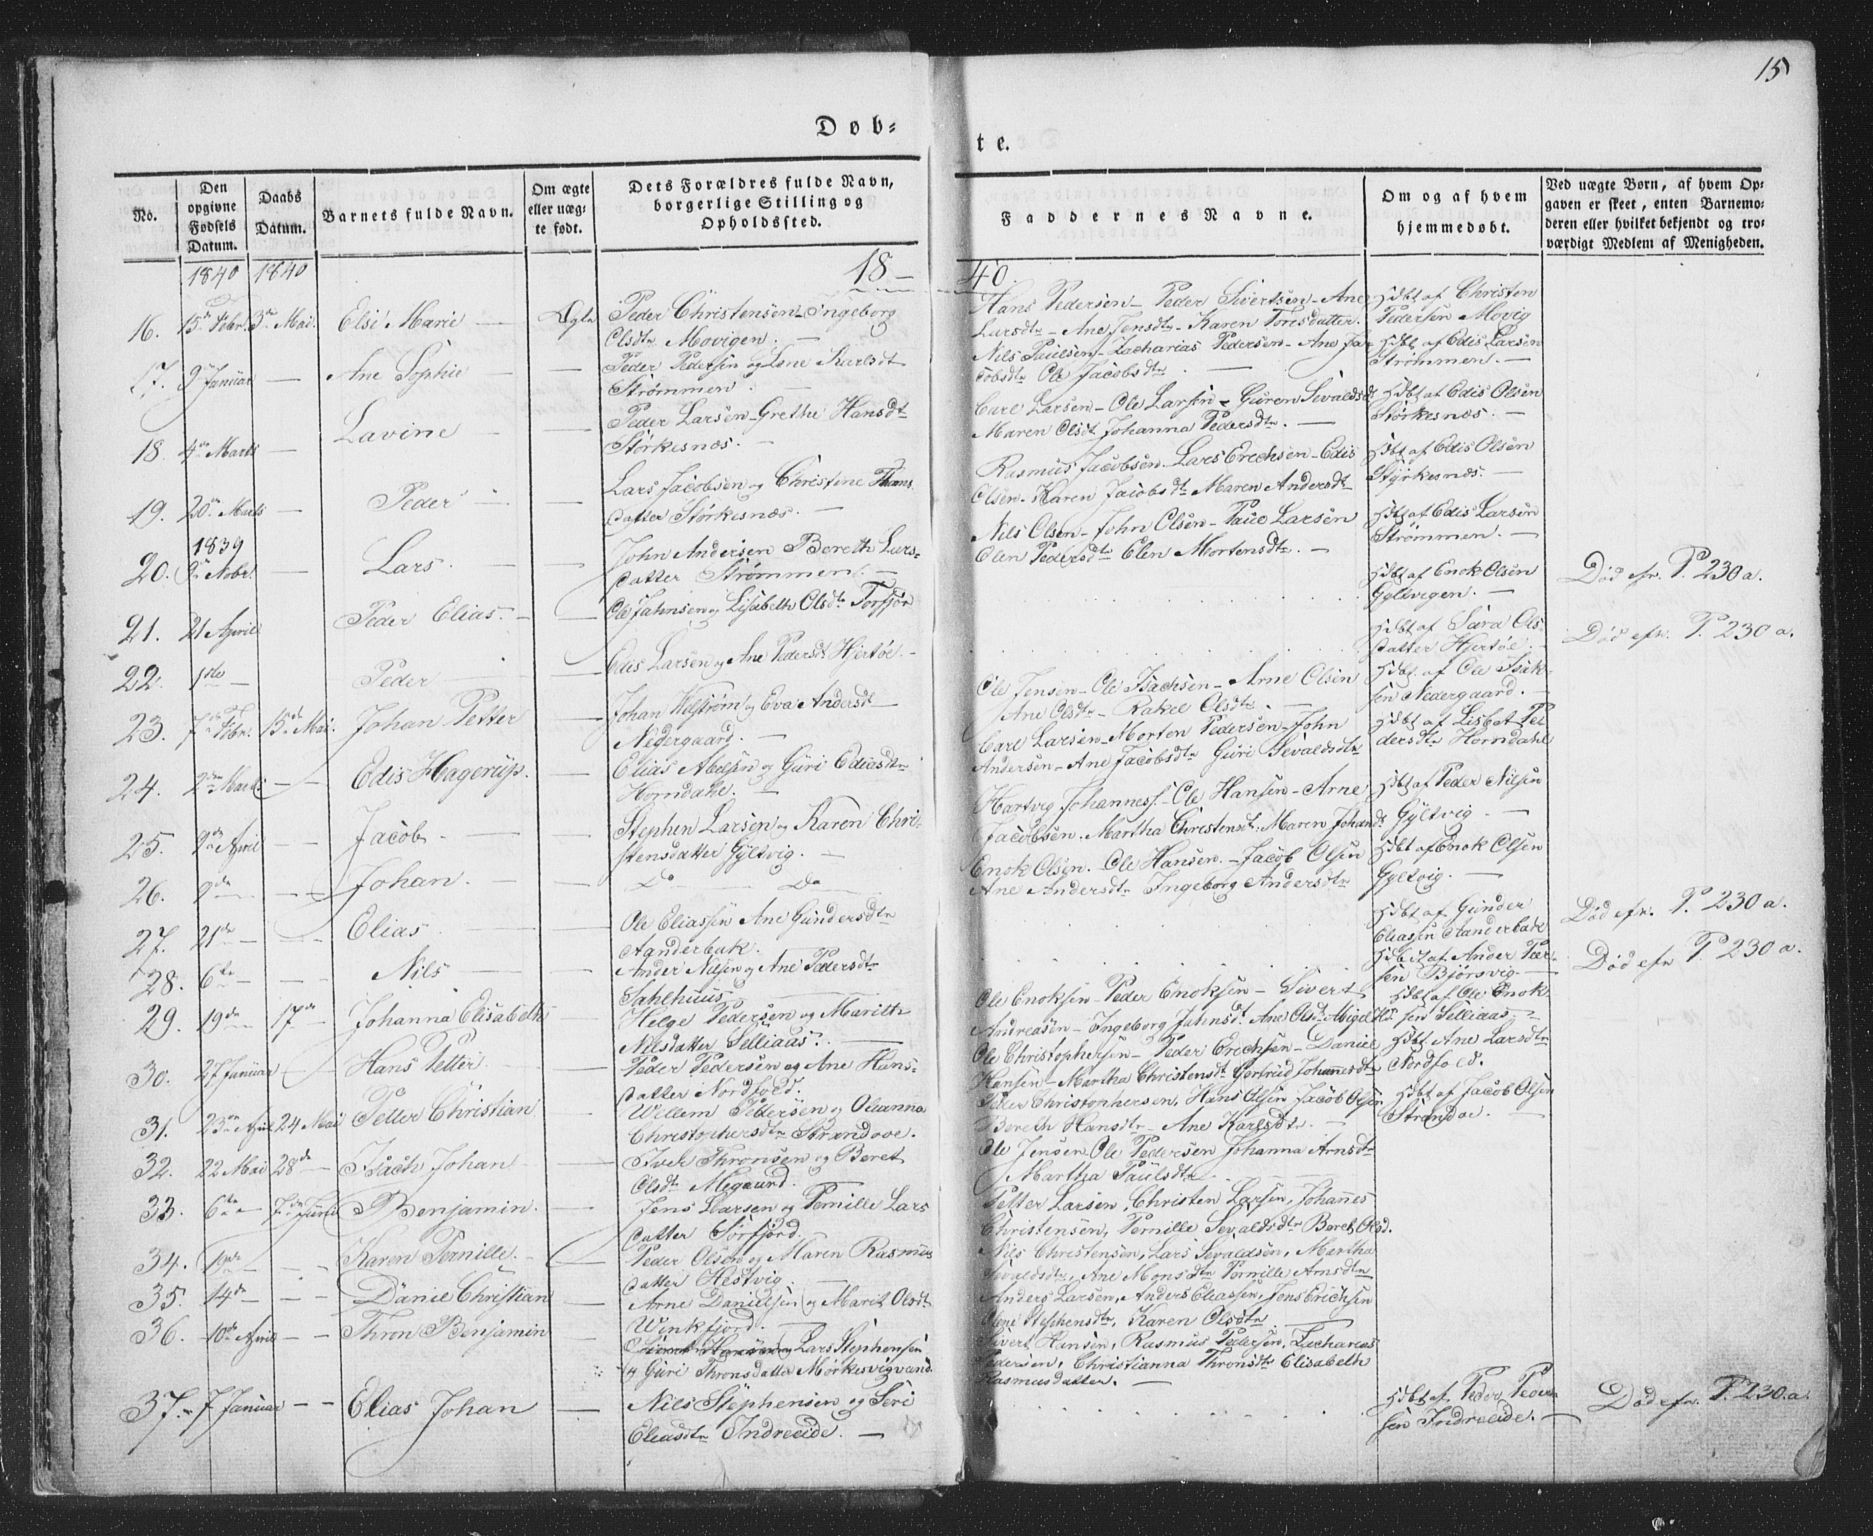 15
Døb-
te.
No.
Den opgivne Fødsels Datum.
Daabs Datum.
Barnets fulde Navn.
Om ægte eller uæg- te født.
Dets Forældres fulde Navn, borgerlige Stilling og Opholdssted.
Faddernes Navne.
Om og af hvem hjemmedøbt.
Ved uægte Børn, af hvem Op- gaven er skeet, enten Barnemo- deren eller hvilket bekjendt og tro- værdigt Medlem af Menigheden.
1840 1840 18- 40
16. 15de Febr. 3die Mai. Else Marie Ægte Peder Christensen Ingeborg
Olsdtr Movigen.
Hans Pedersen - Peder Sivertsen - Ane
Larsdtr - Ane Jensdtr - Karen Toresdatter.
hdbt af Christen
Pedersen Movig
17. 9de Januar Ane Sophie Peder Pedersen og Karlsdt
Strømmen.
Nils Paulsen - Zacharias Pedersen - Ane Ja-
cobsdtr Ole Jacobsdtr
hdbt af Edis Larsen
Strømmen.
18. 4de Marts Lavine Peder Larsen - Grethe Hansdt
Størkesnæs.
Carl Larsen - Ole Larsen - Guren Sivaldsdt
Maren Olsdt Johanna Pedersdtr.
hdbt af Edis Olsen
Størkesnæs.
19. 20de Marts Peder Lars Jacobsen og Christine Thams
datter Størkesnæs.
Rasmus Jacobsen - Lars Erichsen - Edis
Olsen - Karen Jacobsdtr Maren Andersdtr
hdbt af Edis Olsen
Styrkesnæs
1839
20. 9de Nobr. Lars. John Andersen Bereth Lars-
datter Strømmen.
Nils Olsen - John Olsen - Paul Larsen
Olen Pedersdtr Elen Mortensdtr.
hdbt af Edis Larsen
Strømmen.
21. 21 April Peder Elias. Ole Jahnsen og Lisabeth Olsdtr Torfjor
hdbt af Enok Olsen
Gyltvigen.
Død efr. P. 230 a.
22. 1ste Peder Edis Larsen og Ane Pedersdt Hjertøe
hdbt af Sara Ols-
datter Hjertøe.
Død efr. P. 230 a.
23. 7de Febr. 15de Mai. Johan Petter Johan Helstrøm og Eva Andersdt
Nedergaard.
Ole Jensen - Ole Isachsen - Arne Olsen
Ane Olsdtr - Rakel Olsdtr.
hdbt af Ole Isak-
sen Nedergaard.
24. 2den Marts Edis Hagerup. Elias Nilsen og Guri Ediasdtr
Horndahl.
Carl Larsen - Morten Pedersen - John
Andersen - Ane Jacobsdtr Guri Sevaldsdtr
hdbt af Lisbet Pe-
dersdtr Horndahl
25. 9de April Jacob. Stephen Larsen og Karen Chri-
stensdatter Gyltvig.
Hartvig Johannes. - Ole Hansen - Arne
Jacobsen. Martha Christensdt. Maren Johansdt
hdbt af Peder Nilsen
Gyltvig.
26. 9de Johan. Do Do
Enok Olsen. Ole Hansen. - Jacob Olsen
Ane Andersdtr Ingeborg Andersdtr
hdbt af Enok Olsen
Gyltvig.
27. 21de Elias Ole Eliassen Ane Gundersdtr
Aanderbak.
hdbt af Gunder
Eliassen Aanderbak
Død efr. P. 230 a.
28. 6te Nils Ander Nilsen og Ane Pedersdtr
Sahlhuus
hdbt af Ander Peer-
sen Bjørsvig.
Død efr P. 230 a.
29. 19de 17de Johanna Elisabeth Helge Pedersen og Marith
Nilsdatter Selliaas.
Ole Enoksen - Peder Enoksen - Sivert
Andreasen - Ingeborg Jahnsdt. Ane Olsdt Abigel
hdbt af Ole Enok-
sen Selliaas
30. 27 Januar Hans Petter Peder Pedersen og Ane Hans-
datter Nordfold.
Ole Christophersen - Peder Erichsen - Daniel
Hansen - Martha Christensdt Gertrud Johannesdtr
hdbt Ane Larsdtr
Nordfold.
31. 23de April 24 Mai Petter Christian Willem Pedersen og Oleanna
Christophersdtr Strandøe.
Peder Christophersen, Hans Olsen Jacob Olsen
Bereth Hansdtr - Ane Karlsdtr.
hdbt af Jacob Olsen
Strandøe.
32. 22 Mai 28de Isach Johan Iver Thronsen og Beret
Olsdtr Megaard.
Ole Jensen Ole Pedersen Johanna Arnsdtr
Martha Paulsdtr
33. 6te 7de Juni Benjamin. Jens Larsen og Pernille Lars
datter Sørfjord.
Petter Larsen, Christen Larsen, Johannes
Christensen, Pernille Sevaldsdtr Beret Olsd.
34. Karen Pernille. Peder Olsen og Maren Rasmus
datter Hestvig.
Nils Christensen, Lars Sevaldsen, Martha
Sevaldsdtr, Ane Monsdtr Pernille Arnsdtr
35. 14de Daniel Christian Arne Danielsen og Marit Olsdt
Winkfjord.
Anders Larsen, Anders Eliassen, Jens Erichsen
Stephensdtr, Karen Olsdtr
36. 10de April Thron Benjamin Lars Stephensen
og Guri Thronsdatter Mørkesvigvand.
Sivert Hansen, Rasmus Pedersen, Zacharias
Pedersen, Christianna Thronsdtr Elisabeth
Rasmusdatter.
37. 7 Januar Elias Johan Nils Stephensen og Seri
Eliasdtr Indreeide.
hdbt af Peder Peder-
sen Indreeide.
Død efr. P. 230. a.